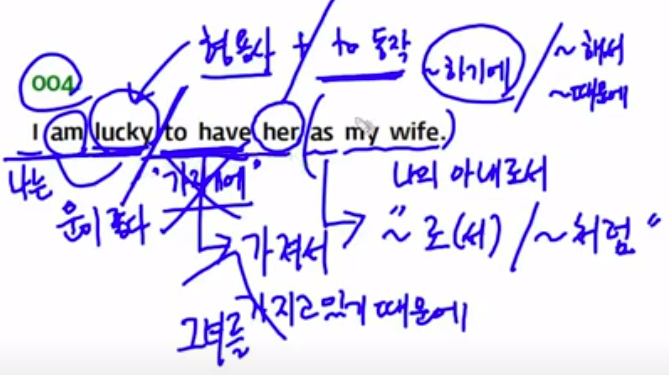 형용사 + to 동작 ~하기에 / ~해서
~때문에
004
I am lucky to have her as my wife.
나는 "가지기에" 나의 아내로서
운이 좋다 가져서 "~로(서) / ~처럼"
그녀를 가지고 있기 때문에